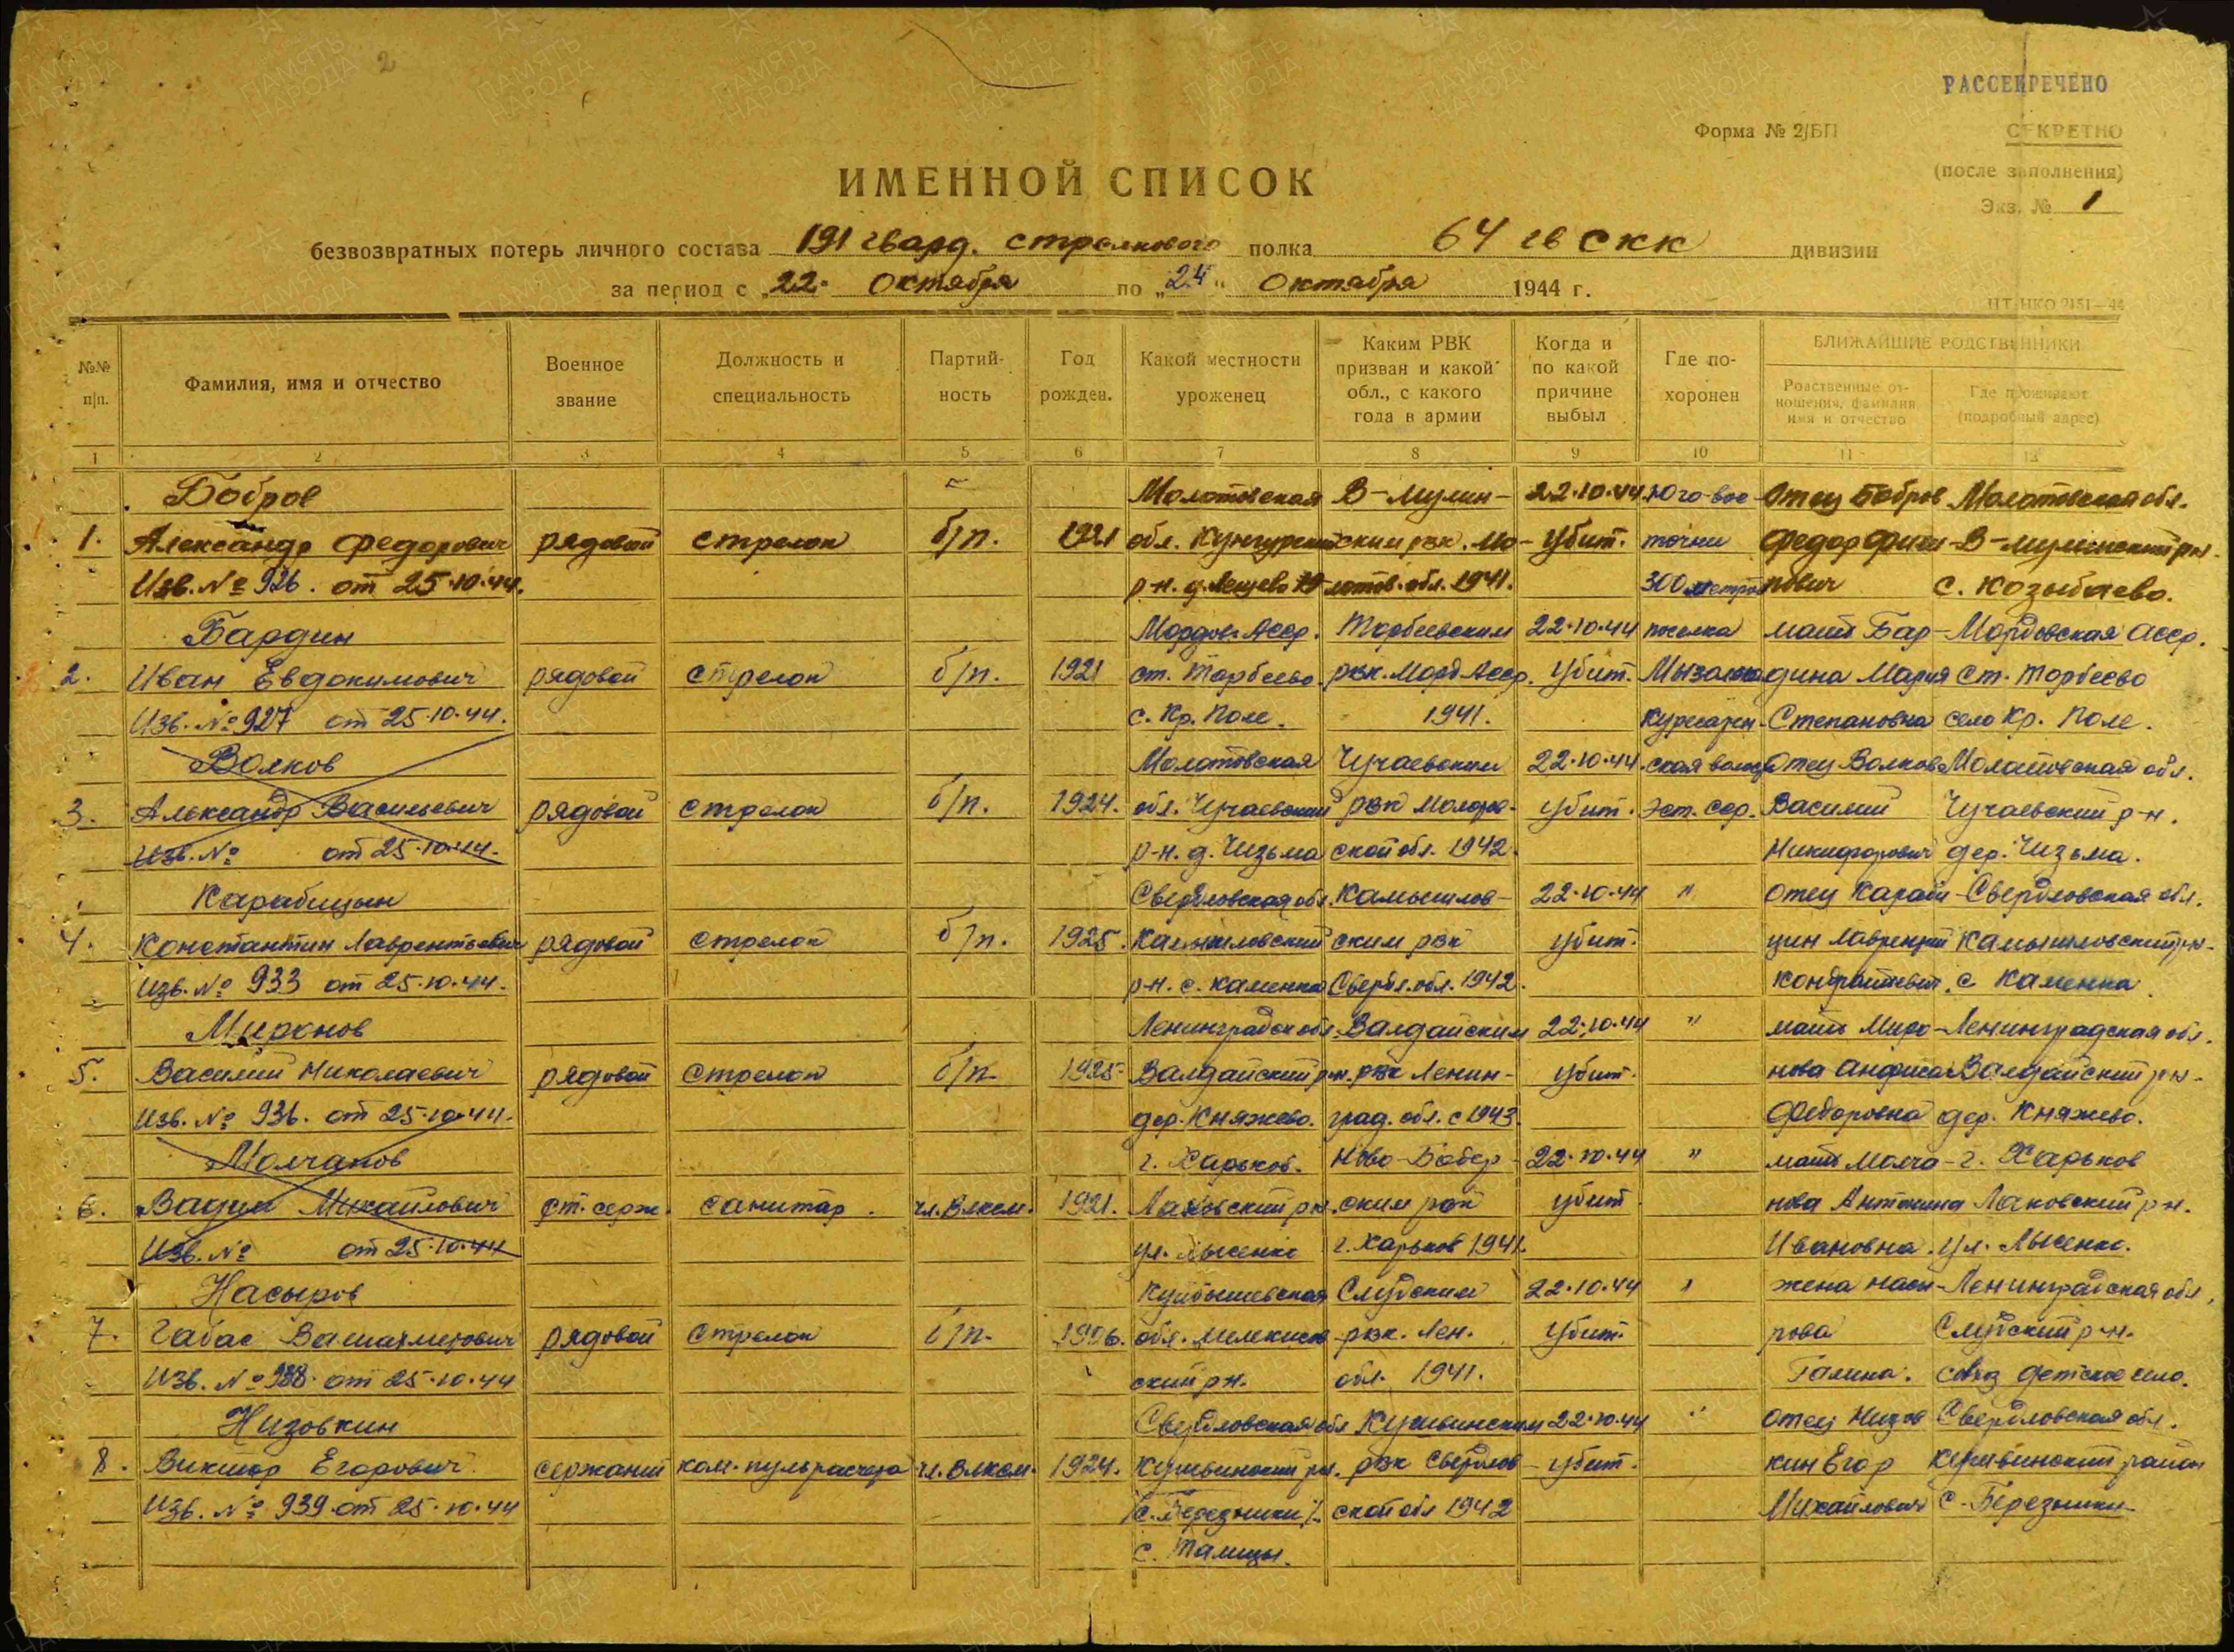 РАССЕКРЕЧЕНО
Форма № 2/БП
СЕКРЕТНО
(после заполнения)
Экз. № 1
ИМЕННОЙ СПИСОК
безвозвратных потерь личного состава 191 гвард. стрелкового полка 64 гв скк дивизии
за период с „22" октября по „24" октября 1944 г.
№№ п/п.
Фамилия, имя и отчество
Военное звание
Должность и специальность
Партийность
Год рожден.
Какой местности уроженец
Каким РВК призван и какой обл., с какого года в армии
Когда и по какой причине выбыл
Где похоронен
БЛИЖАЙШИЕ РОДСТВЕННИКИ
Родственные отношения, фамилия имя и отчество
Где проживают (подробный адрес)
1 2 3 4 5 6 7 8 9 10 11 12
Бобров Молотовская В-Мулин- 22.10.44 Юго-вос- Отец Бобров Молотовская обл.
1. Александр Федорович рядовой стрелок б/п. 1921 обл. Кунгурский ским рвк. Мо- убит. точни Федор В-Мулинский р-н.
Изв. № 926. от 25.10.44. р-н. д. лотов. обл. 1941. 300 метров с. Козыбаево.
Бардин Мордов. Асср. Торбеевским 22.10.44 поселка мать Бар- Мордовская Асср.
2. Иван Евдокимович рядовой стрелок б/п. 1921 ст. Торбеево. рвк. Морд Асср. убит. дина Мария ст. Торбеево
Изв. № 927 от 25.10.44. с. Кр. Поле. 1941. Куресарен- Степановна село Кр. Поле.
Волков Молотовская Чучаевским 22.10.44 ская Отец Волков Молотовская обл.
3. Александр Васильевич рядовой стрелок б/п. 1924. обл. Чучаевский рвк убит. Эст. сср. Василий Чучаевский р-н.
Изв. № от 25.10.44. р-н. д. Чизьма ской обл. 1942. Никифорович дер. Чизьма.
Карабицын Свердловская обл. Камышлов- 22.10.44 " Отец Свердловская обл.
4. Константин Лаврентьевич рядовой стрелок б/п. 1925. Камышловский ским рвк убит. цин Лаврентий Камышловский р-н.
Изв. № 933 от 25.10.44. р-н. с. Каменка Свердл. обл. 1942. Кондратьевич. с Каменка
Миронов Ленинградск обл. Валдайским 22.10.44 " мать Миро- Ленинградская обл.
5. Василий Николаевич рядовой стрелок б/п. 1925 Валдайский р-н. рвк Ленин- убит. нова Анфиса Валдайский р-н.
Изв. № 936. от 25.10.44. дер. Княжево. град. обл. с 1943. Федоровна дер. Княжево.
Молчанов г. Харьков. Ново-Бавар 22.10.44 " мать Молча- г. Харьков
6. Вадим Михайлович ст. серж. санитар. чл. Влксм. 1921. р-н. ским рвк убит. нова Антонина р-н.
Изв. № от 25.10.44 ул. Лысенко г. Харьков 1941. Ивановна. ул. Лысенко.
Насыров Куйбышевская Слудским 22.10.44 " жена Насы- Ленинградская обл.
7. Габас рядовой стрелок б/п. 1906. обл. Мелекесс- рвк. Лен. убит. рова Слудский р-н.
Изв. № 938. от 25.10.44 ский р-н. обл. 1941. Галина. совхоз Детское село.
Низовкин Свердловская обл Кушвинским 22.10.44 " Отец Низов Свердловская обл.
8. Виктор Егорович сержант ком. пульрасчета чл. Влксм. 1924. Кушвинский р-н. рвк Свердлов- убит. кин Егор Кушвинский район
Изв. № 939 от 25.10.44 /с. Березники/. ской обл 1942 Михайлович с. Березники
с. Талицы.